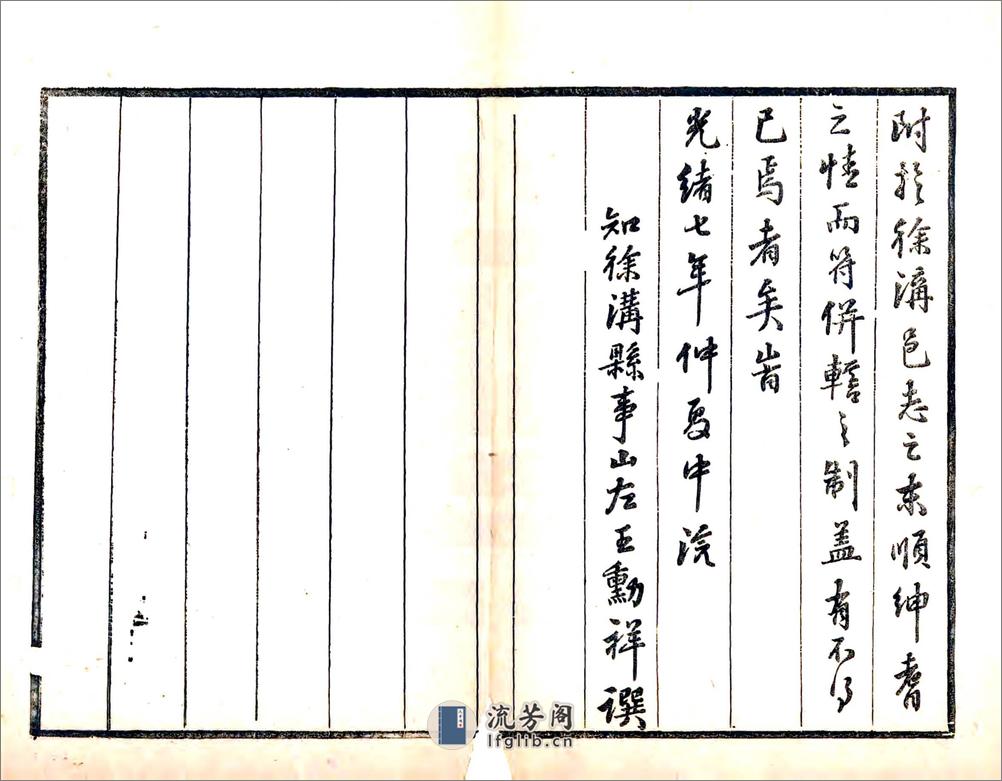 附於徐溝邑志之末順紳耆
之情而符併轄之制蓋有不得
已焉者矣旹
光緒七年仲夏中浣
知徐溝縣事山左王勳祥譔
流芳阁
lfglib.cn